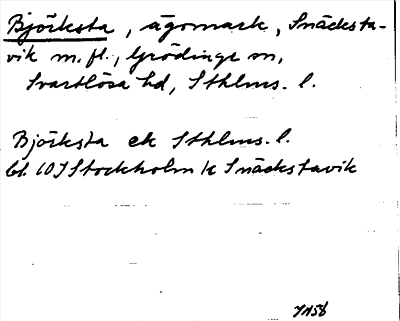 Björksta, ägomark, Snäcksta-
vik m. fl., Grödinge sn,
Svartlösa hd, Sthlms. l.
Björksta ek Sthlms. l.
bl. 10I Stockholm/c Snäckstavik